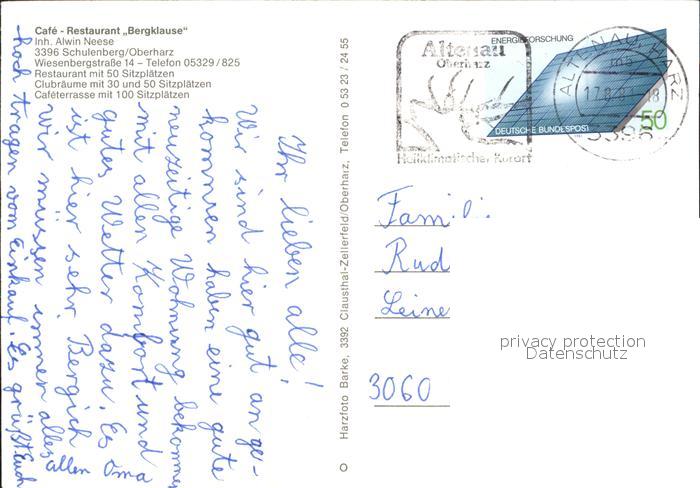 Café - Restaurant „Bergklause"
Inh. Alwin Neese
3396 Schulenberg/Oberharz
Wiesenbergstraße 14 – Telefon 05329/825
Restaurant mit 50 Sitzplätzen
Clubräume mit 30 und 50 Sitzplätzen
Caféterrasse mit 100 Sitzplätzen
Ihr lieben alle!
Wir sind hier gut ange-
kommen, haben eine gute
neuzeitige Wohnung bekommen
mit allen Komfort und
gutes Wetter dazu. Es
ist hier sehr Bergich
wir müssen immer alles
hoch tragen vom Einkauf. Es grüßt Euch
allen Oma
Harzfoto Barke, 3392 Clausthal-Zellerfeld/Oberharz, Telefon 0 53 23 / 24 55
Altenau
Oberharz
Heilklimatischer Kurort
ENERGIEFORSCHUNG
DEUTSCHE BUNDESPOST
50
ALTENAU, HARZ
3396
Fami
Rud
Leine
3060
privacy protection
Datenschutz